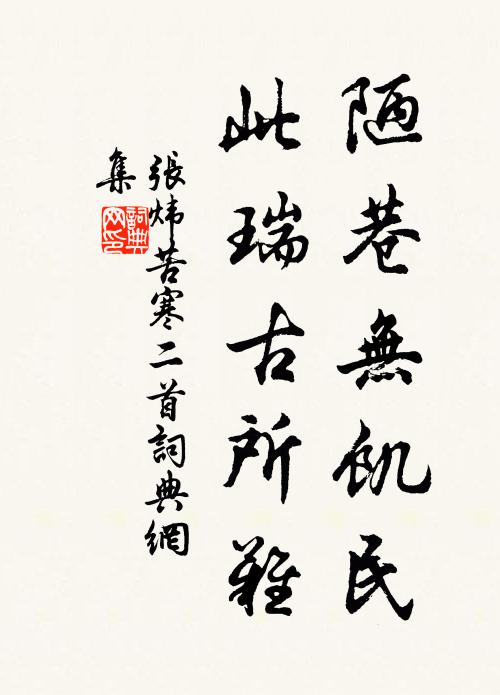 陋巷無飢民
此瑞古所難
張煒苦寒二首詞典網
集
詞典
网印